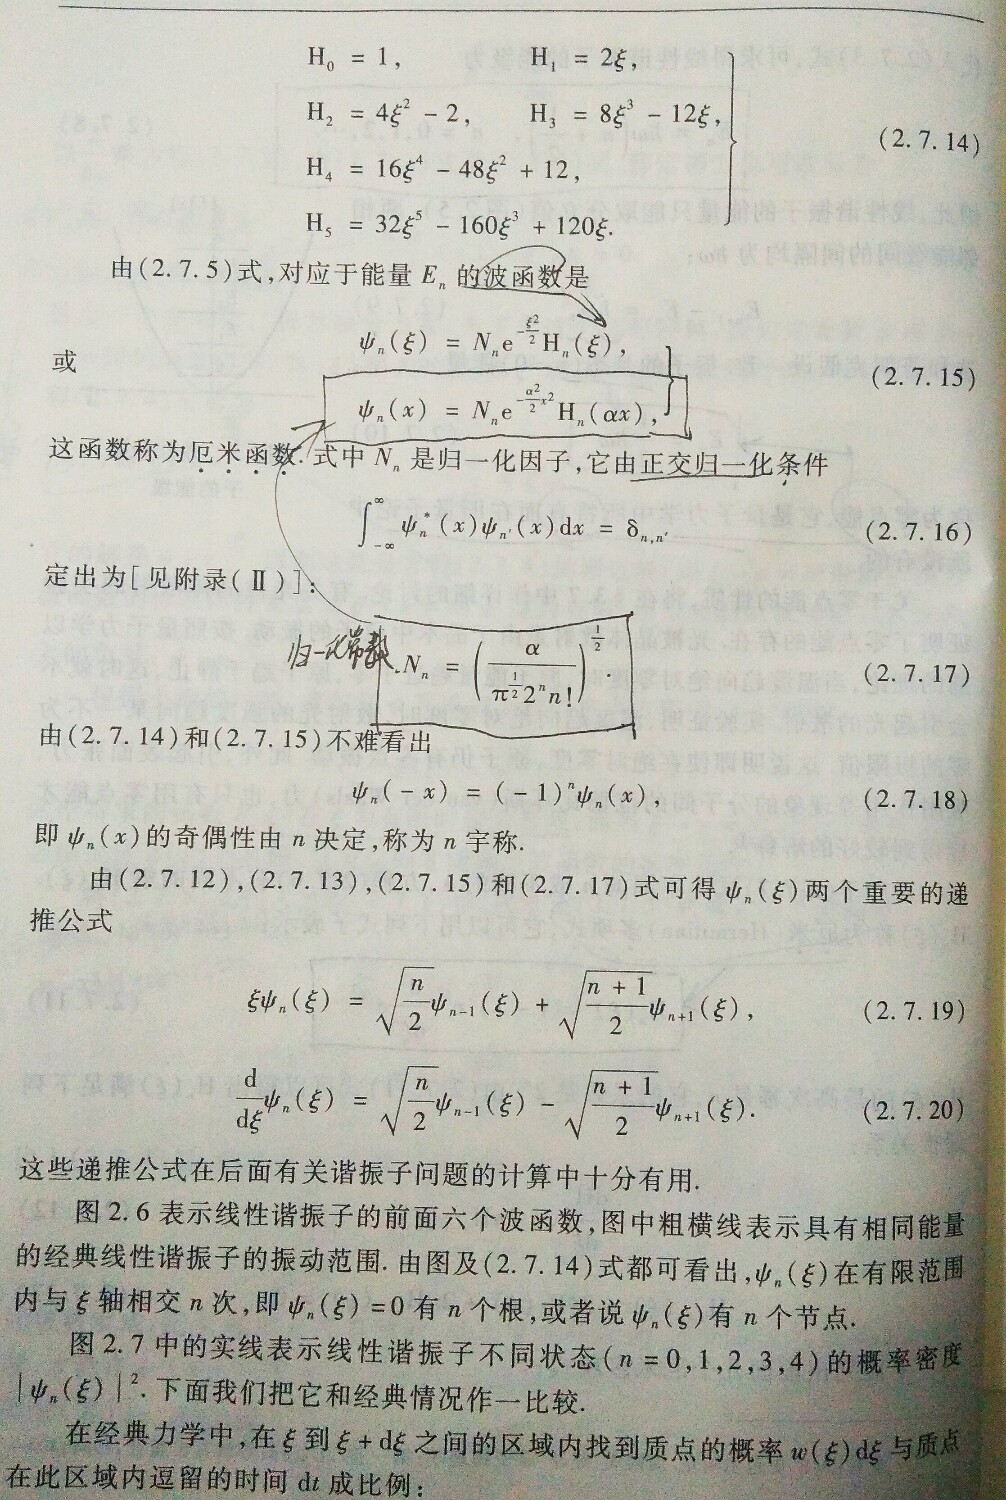 H₀ = 1, H₁ = 2ξ,
H₂ = 4ξ² − 2, H₃ = 8ξ³ − 12ξ,
(2.7.14)
H₄ = 16ξ⁴ − 48ξ² + 12,
H₅ = 32ξ⁵ − 160ξ³ + 120ξ.
由(2.7.5)式,对应于能量 Eₙ 的波函数是
ψₙ(ξ) = Nₙe^{-ξ²/2}Hₙ(ξ),
或
(2.7.15)
ψₙ(x) = Nₙe^{-α²/2 x²}Hₙ(αx),
这函数称为厄米函数.式中 Nₙ 是归一化因子,它由正交归一化条件
∫_{-∞}^{∞} ψₙ*(x)ψₙ′(x)dx = δ_{n,n′} (2.7.16)
定出为[见附录(Ⅱ)]:
归一化常数 Nₙ = (α / π^{1/2}2ⁿn!)^{1/2}. (2.7.17)
由(2.7.14)和(2.7.15)不难看出
ψₙ(−x) = (−1)ⁿψₙ(x), (2.7.18)
即 ψₙ(x)的奇偶性由 n 决定,称为 n 宇称.
由(2.7.12),(2.7.13),(2.7.15)和(2.7.17)式可得 ψₙ(ξ)两个重要的递
推公式
ξψₙ(ξ) = √(n/2) ψₙ₋₁(ξ) + √((n+1)/2) ψₙ₊₁(ξ), (2.7.19)
d/dξ ψₙ(ξ) = √(n/2) ψₙ₋₁(ξ) − √((n+1)/2) ψₙ₊₁(ξ). (2.7.20)
这些递推公式在后面有关谐振子问题的计算中十分有用.
图 2.6 表示线性谐振子的前面六个波函数,图中粗横线表示具有相同能量
的经典线性谐振子的振动范围.由图及(2.7.14)式都可看出,ψₙ(ξ)在有限范围
内与 ξ 轴相交 n 次,即 ψₙ(ξ)=0 有 n 个根,或者说 ψₙ(ξ)有 n 个节点.
图 2.7 中的实线表示线性谐振子不同状态(n=0,1,2,3,4)的概率密度
|ψₙ(ξ)|².下面我们把它和经典情况作一比较.
在经典力学中,在 ξ 到 ξ+dξ 之间的区域内找到质点的概率 w(ξ)dξ 与质点
在此区域内逗留的时间 dt 成比例: